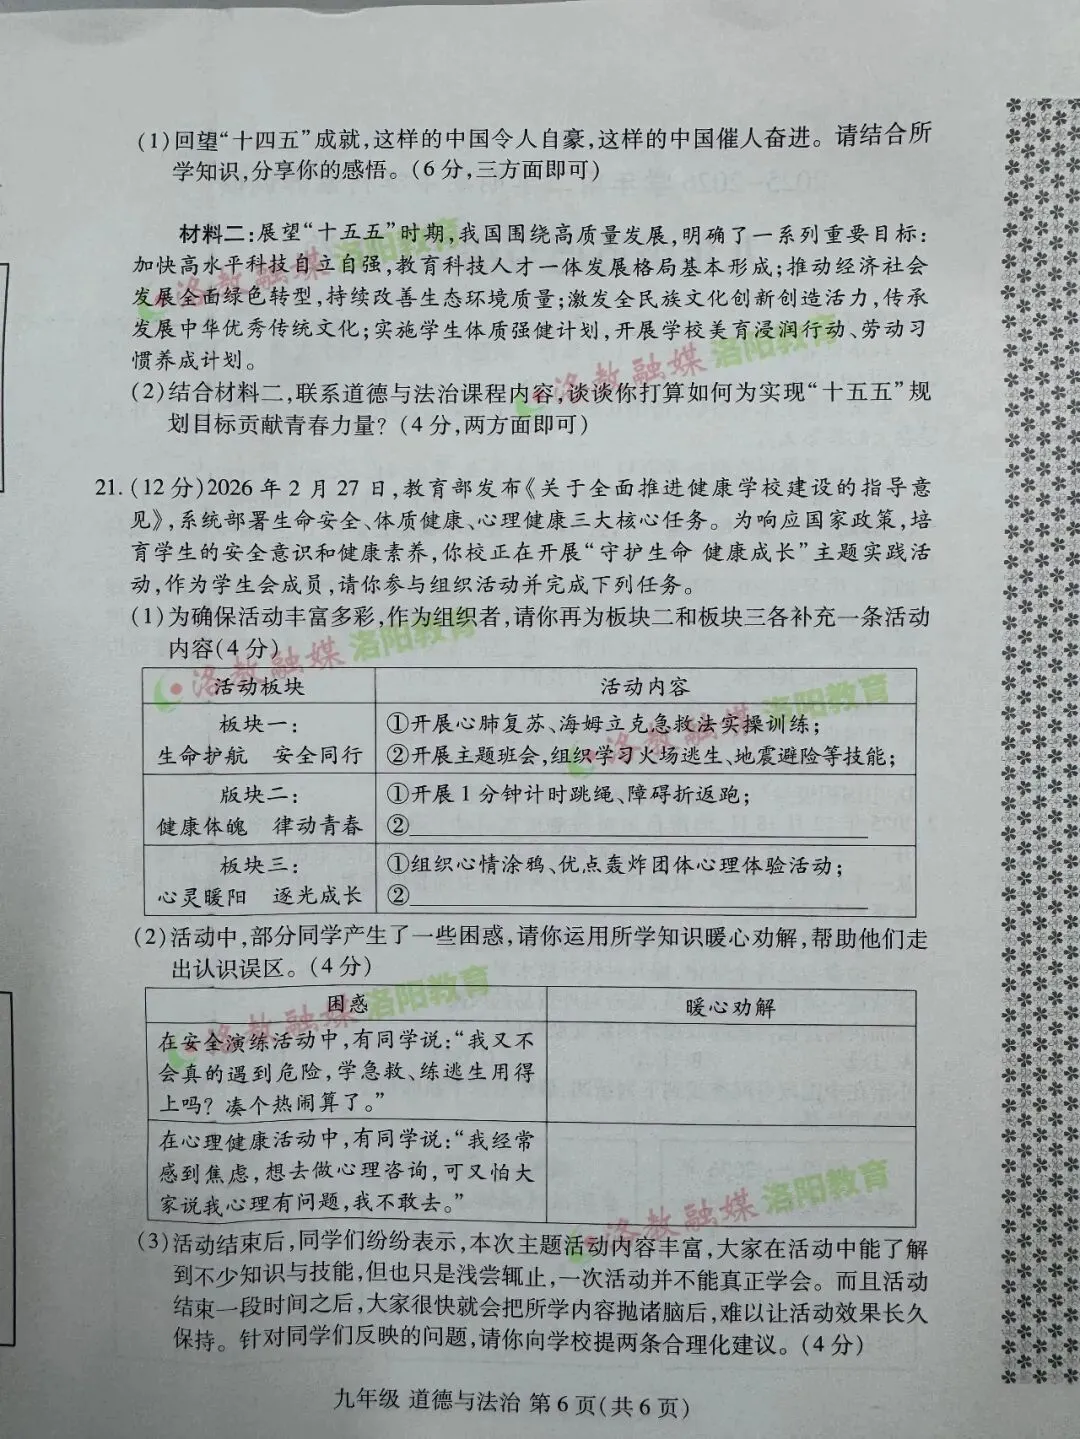 (1)回望“十四五”成就,这样的中国令人自豪,这样的中国催人奋进。请结合所
学知识,分享你的感悟。(6分,三方面即可)
材料二:展望“十五五”时期,我国围绕高质量发展,明确了一系列重要目标:
加快高水平科技自立自强,教育科技人才一体发展格局基本形成;推动经济社会
发展全面绿色转型,持续改善生态环境质量;激发全民族文化创新创造活力,传承
发展中华优秀传统文化;实施学生体质强健计划,开展学校美育浸润行动、劳动习
惯养成计划。
(2)结合材料二,联系道德与法治课程内容,谈谈你打算如何为实现“十五五”规
划目标贡献青春力量?(4分,两方面即可)
21.(12分)2026年2月27日,教育部发布《关于全面推进健康学校建设的指导意
见》,系统部署生命安全、体质健康、心理健康三大核心任务。为响应国家政策,培
育学生的安全意识和健康素养,你校正在开展“守护生命 健康成长”主题实践活
动,作为学生会成员,请你参与组织活动并完成下列任务。
(1)为确保活动丰富多彩,作为组织者,请你再为板块二和板块三各补充一条活动
内容(4分)
活动板块 活动内容
板块一:
生命护航 安全同行
①开展心肺复苏、海姆立克急救法实操训练;
②开展主题班会,组织学习火场逃生、地震避险等技能;
版块二:
健康体魄 律动青春
①开展1分钟计时跳绳、障碍折返跑;
②
板块三:
心灵暖阳 逐光成长
①组织心情涂鸦、优点轰炸团体心理体验活动;
②
(2)活动中,部分同学产生了一些困惑,请你运用所学知识暖心劝解,帮助他们走
出认识误区。(4分)
困惑 暖心劝解
在安全演练活动中,有同学说:“我又不
会真的遇到危险,学急救、练逃生用得
上吗?凑个热闹算了。”
在心理健康活动中,有同学说:“我经常
感到焦虑,想去做心理咨询,可又怕大
家说我心理有问题,我不敢去。”
(3)活动结束后,同学们纷纷表示,本次主题活动内容丰富,大家在活动中能了解
到不少知识与技能,但也只是浅尝辄止,一次活动并不能真正学会。而且活动
结束一段时间之后,大家很快就会把所学内容抛诸脑后,难以让活动效果长久
保持。针对同学们反映的问题,请你向学校提两条合理化建议。(4分)
九年级 道德与法治 第6页(共6页)
洛教融媒 洛阳教育
洛教融媒 洛阳教育
洛教融媒 洛阳教育
洛教融媒 洛阳教育
洛教融媒 洛阳教育
洛教融媒 洛阳教育